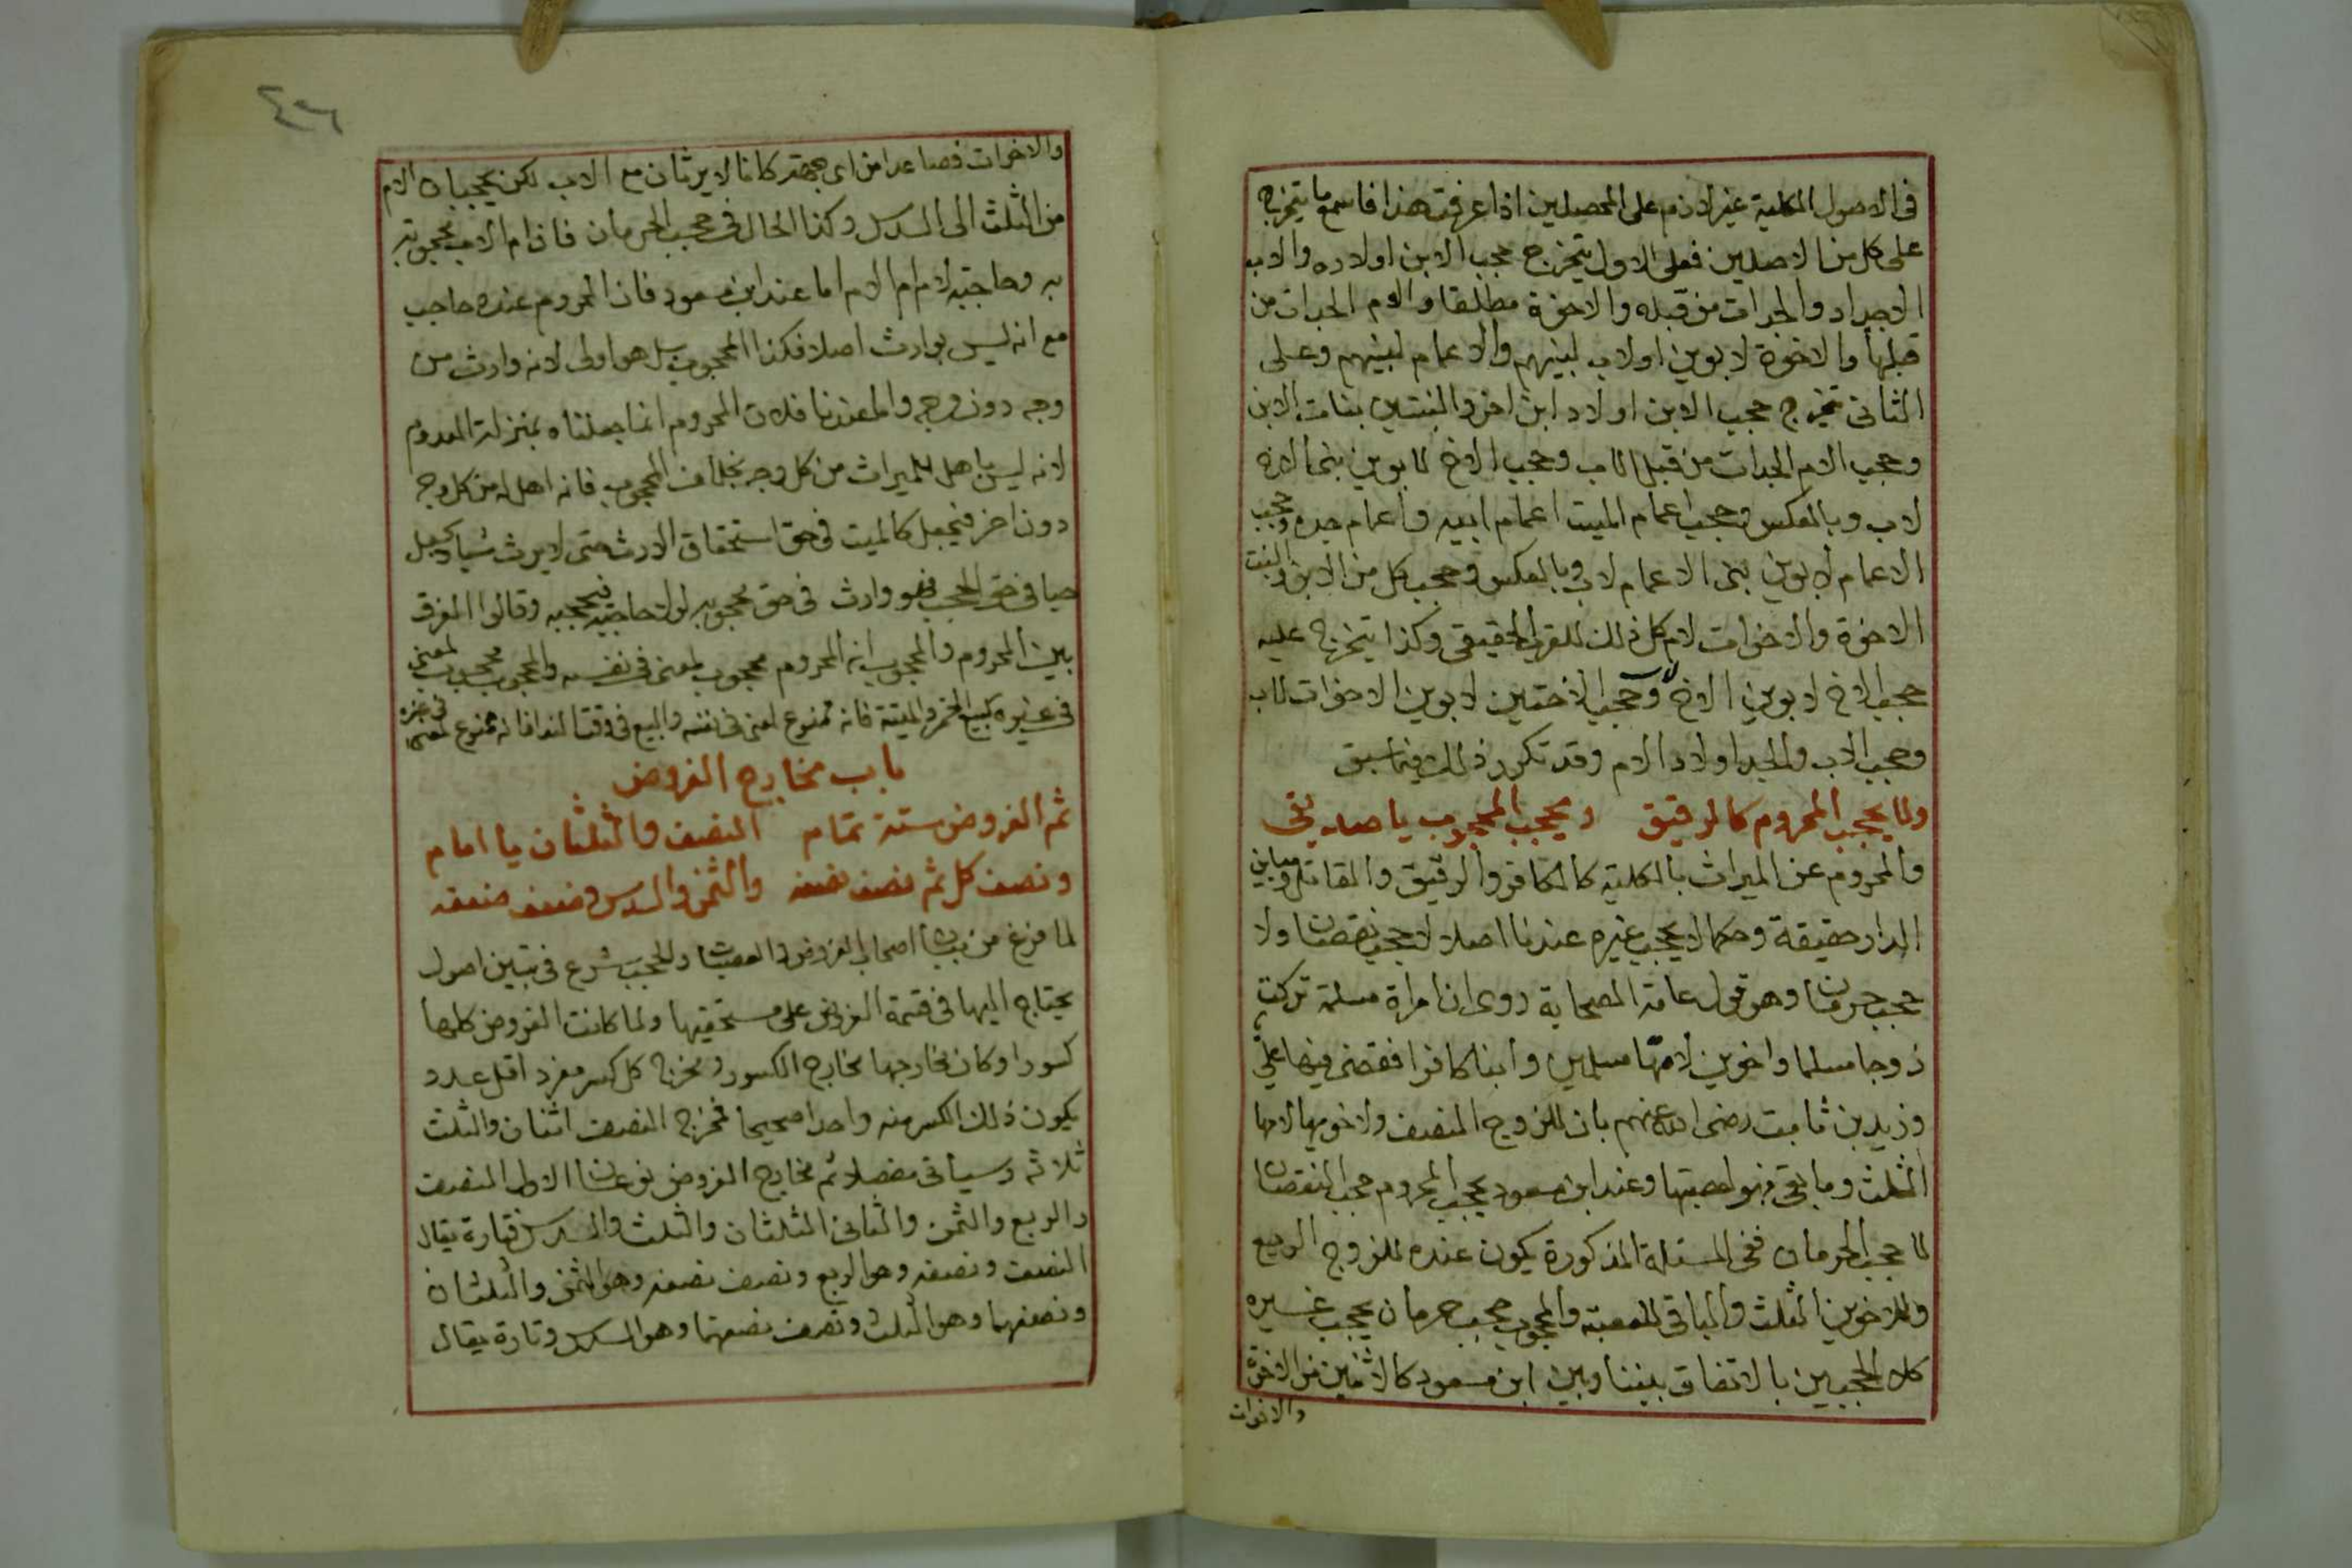 فى الاصول الكلية غير لازم على المحصلين اذا عرفت هذا فاسمع ما يتخرج
على كل من الاصلين فعلى الاول يتخرج حجب الابن اولاده والاب
الاجداد والجدات من قبله والاخوة مطلقا والام الجدات من
قبلها والاخوة لابوين او لاب لبنيهم والاعمام لبنيهم وعلى
الثانى تخرج حجب الابن اولاد ابن اخر والبنتين بنات الابن
وحجب الام الجدات من قبل الاب وحجب الاخ لابوين بنى الاخ
لاب وبالعكس وحجب اعمام الميت اعمام ابيه واعمام جده وحجب
الاعمام لابوين بنى الاعمام لاب وبالعكس وحجب كل من الابن والبنت
الاخوة والاخوات لام كل ذلك للقرب الحقيقى وكذا يتخرج عليه
حجب الاخ لابوين الاخ لاب وحجب الاختين لابوين الاخوات لاب
وحجب الاب والجد اولاد الام وقد تكرر ذلك فيما سبق
ولا يحجب المحروم كالرقيق ويحجب المحجوب يا صديقى
والمحروم عن الميراث بالكلية كالكافر والرقيق والقاتل ومباين
الدار حقيقة وحكما لا يحجب غيره عندنا اصلا لا حجب نقصان ولا
حجب حرمان وهو قول عامة الصحابة روى ان امراة مسلمة تركت
زوجا مسلما واخوين لامها مسلمين وابنا كافرا فقضى فيها على
وزيد بن ثابت رضى الله عنهم بان للزوج النصف ولاخويها لامها
الثلث وما بقى فهو لعصبتها وعند ابن مسعود يحجب المحروم حجب النقصان
لا حجب الحرمان ففى المسئلة المذكورة يكون عنده للزوج الربع
وللاخوين الثلث والباقى للعصبة والمحجوب حجب حرمان يحجب غيره
كلا الحجبين بالاتفاق بيننا وبين ابن مسعود كالاثنين من الاخوة
والاخوات
٤٦
والاخوات فصاعدا من اى جهة كانا لا يرثان مع الاب لكن يحجبان الام
من الثلث الى السدس وكذا الحال فى حجب الحرمان فان ام الاب محجوبة
به وحاجبة لام ام الام اما عند ابن مسعود فان المحروم عنده حاجب
مع انه ليس بوارث اصلا فكذا المحجوب بل هو اولى لانه وارث من
وجه دون وجه واما عندنا فلان المحروم انما جعلناه بمنزلة المعدوم
لانه ليس باهل للميراث من كل وجه بخلاف المحجوب فانه اهل له من كل وجه
دون اخر فيجعل كالميت فى حق استحقاق الارث حتى لا يرث شيا ويجعل
حيا فى حق الحجب فهو وارث فى حق محجوبه لولا حاجبه فيحجبه وقالوا الفرق
بين المحروم والمحجوب انه المحروم محجوب لمعنى فى نفسه والمحجوب محجوب لمعنى
فى غيره كبيع الخمر والميتة فانه ممنوع لمعنى فى نفسه والبيع فى وقت الندا فانه ممنوع لمعنى فى غيره
باب مخارج الفروض
ثم الفروض ستة تمام النصف والثلثان يا امام
ونصف كل ثم نصف نصفه والثمن والسدس وضعف ضعفه
لما فرغ من بيان اصحاب الفروض والعصبات والحجب شرع فى تبيين اصول
يحتاج اليها فى قسمة الفروض على مستحقيها ولما كانت الفروض كلها
كسورا وكان مخارجها مخارج الكسور ومخرج كل كسر مفرد اقل عدد
يكون ذلك الكسر منه واحدا صحيحا فمخرج النصف اثنان والثلث
ثلاثة وسياتى مفصلا ثم مخارج الفروض نوعان الاول النصف
والربع والثمن والثانى الثلثان والثلث والسدس فتارة يقال
النصف ونصفه وهو الربع ونصف نصفه وهو الثمن والثلثان
ونصفهما وهو الثلث ونصف نصفهما وهو السدس وتارة يقال